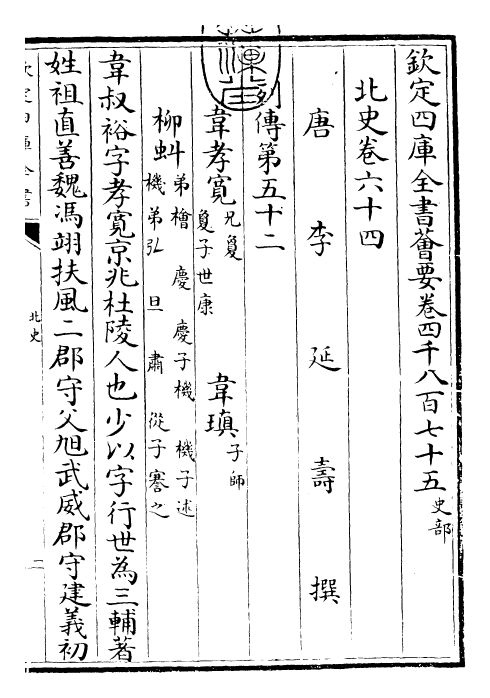 欽定四庫全書薈要卷四千八百七十五史部
北史卷六十四
唐李延壽撰
列傳第五十二
韋孝寬兄夐夐子世康韋瑱子師
柳虯弟檜慶慶子機機子述機弟弘旦肅從子謇之
韋叔裕字孝寬京兆杜陵人也少以字行世為三輔著
姓祖直善魏馮翊扶風二郡守父旭武威郡守建義初
北史